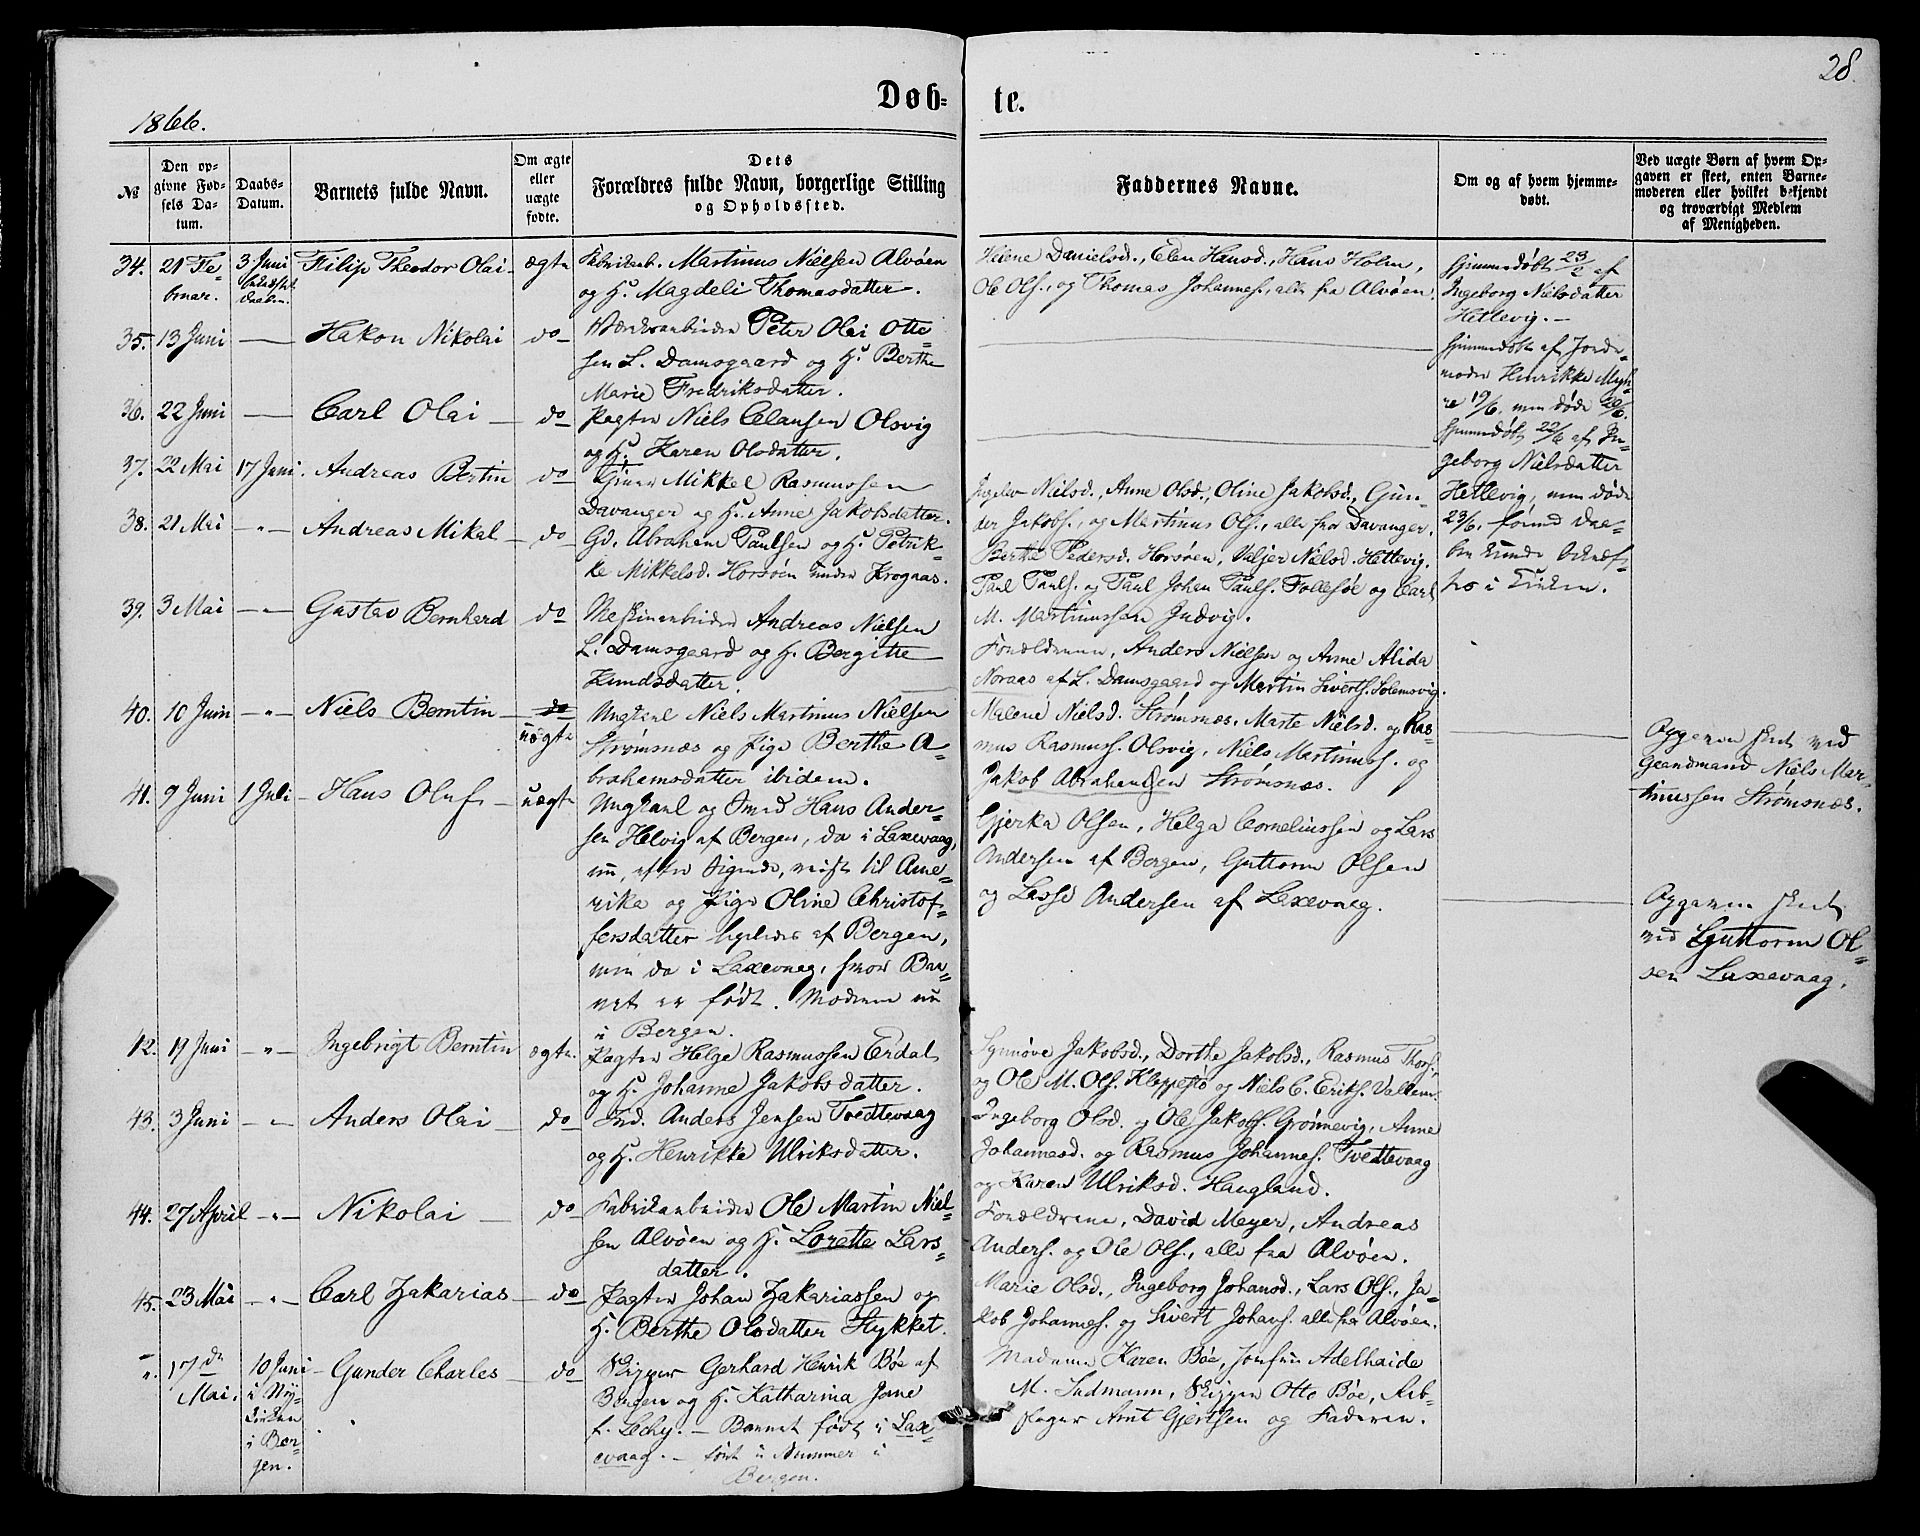 28.
Døb-
te.
1866.
№
Den op-
givne Fød-
sels Da-
tum.
Daabs-
Datum.
Barnets fulde Navn.
Om ægte
eller
uægte
fødte.
Dets
Forældres fulde Navn, borgerlige Stilling
og Opholdssted.
Faddernes Navne.
Om og af hvem hjemme-
døbt.
Ved uægte Børn af hvem Op-
gaven er skeet, enten Barne-
moderen eller hvilket bekjendt
og troværdigt Medlem
af Menigheden.
34. 21 Fe-
bruar.
3 Juni
Daaben.
Filip Theodor Olai
ægte
Fabrikarb. Martinus Nielsen Alvøen
og H. Magdeli Thomasdatter.
Helene Danielsd., Elen Hansd., Hans Holm,
Ole Ols., og Thomas Johannes., alle fra Alvøen.
Hjemmedøbt 23/2 af
Ingeborg Nielsdatter
Hettevig.
35. 13 Juni
Hakon Nikolai
do
Værksarbeider Peter Olai Otte-
sen L. Damsgaard og H. Berthe
Marie Fredriksdatter.
Hjemmedøbt af Jorde-
moder Henrikke Myh-
re 19/6, men døde 20/6.
36. 22 Juni
Carl Olai
do
Pagter Niels Clausen Olsvig
og H. Karen Olsdatter.
Hjemmedøbt 22/6 af In-
geborg Nielsdatter
Hettevig, men døde
23/6, førend Daa-
ben kunde bekræft-
es i Kirken.
37. 22 Mai
17 Juni.
Andreas Bertin
do
Mikkel Rasmussen
Davanger og H. Anne Jakobsdatter.
Ingelev Nielsd., Anne Olsd., Oline Jakobsd., Gun-
der Jakobs., og Martinus Ols., alle fra Davanger.
38. 21 Mai
-"-
Andreas Mikal
do
Gd. Abraham Paulsen og H. Petrik-
ke Mikkelsd. Horsøen under Krogaas.
Berthe Pedersd. Horsøen, Valjer Nielsd. Hettevig,
Paul Pauls. og Paul Johan Pauls. Follesøe og Carl
M. Martinussen Indvig.
39. 3 Mai
-"-
Gustav Bernhard
do
Maskinarbeider Andreas Nielsen
L. Damsgaard og H. Bergitte
Knudsdatter.
Forældrene, Anders Nielsen og Anne Alida
Noraas af L. Damsgaard og Martin Siverts. Solemsvig.
40. 10 Juni
-"-
Niels Berntin
do
uægte
Ungkarl Niels Martinus Nielsen
Strømsnæs og Pige Berthe A-
brahamsdatter ibidem.
Malene Nielsd. Strømsnæs, Marte Nielsd. og Ras-
mus Rasmuss. Olsvig, Niels Martinus. og
Jakob Abrahamsen Strømsnæs.
Opgaven skeet ved
Graandmand Niels Mar-
tinussen Strømsnæs.
41. 9 Juni
1 Juli
Hans Oluf
uægte
Ungkarl og Smed Hans Ander-
sen Helvig af Bergen, da i Laxevaag,
nu, efter Sigende, reist til Ame-
rika og Pige Oline Christof-
fersdatter ligeledes af Bergen,
men da i Laxevaag, hvor Bar-
net er født. Moderen nu
i Bergen.
Gjerka Olsen, Helga Corneliussen og Lars
Andersen af Bergen, Guttorm Olsen
og Lasse Andersen af Laxevaag.
Opgaven skeet
ved Guttorm Ol-
sen Laxevaag.
42. 19 Juni
-"-
Ingebrigt Berntin
ægte.
Pagter Helge Rasmussen Erdal
og H. Johanne Jakobsdatter.
Synnøve Jakobsd., Dorthe Jakobsd., Rasmus Thors.
og Ole M. Ols. Kleppestø og Niels C. Eriks. Valkem.
43. 3 Juni
-"-
Anders Olai
do
Ind. Anders Jensen Tvedtevaag
og H. Henrikke Ulriksdatter.
Ingeborg Olsd. og Ole Jakobs. Grønnevig, Anne
Johannesd. og Rasmus Johannes. Tvedtevaag
og Karen Ulriksd. Haugland.
44. 27 April
-"-
Nikolai
do
Fabrikarbeider Ole Martin Niel-
sen Alvøen og H. Lorette Lars-
datter.
Forældrene, David Meyer, Andreas
Anders. og Ole Ols., alle fra Alvøen.
45. 23 Mai
-"-
Carl Zakarias
do
Pagter Johan Zakariassen og
H. Berthe Olsdatter Stykket.
Marie Olsd., Ingeborg Johansd., Lars Ols., Ja-
kob Johannes. og Sivert Johans. alle fra Alvøen.
". 17de
Mai.
10 Juni
i Ny-
kirken
i Ber-
gen.
Gunder Charles
do
Skipper Gerhard Henrik Bøe af
Bergen og H. Katharina Jane
f. Lechy. - Barnet født i Lax-
evaag. - født u Nummer i
Bergen.
Madame Karen Bøe, Jomfru Adelhaide
M. Sudmann, Skipper Otto Bøe, Reb-
slager Arnt Gjertsen og Faderen.